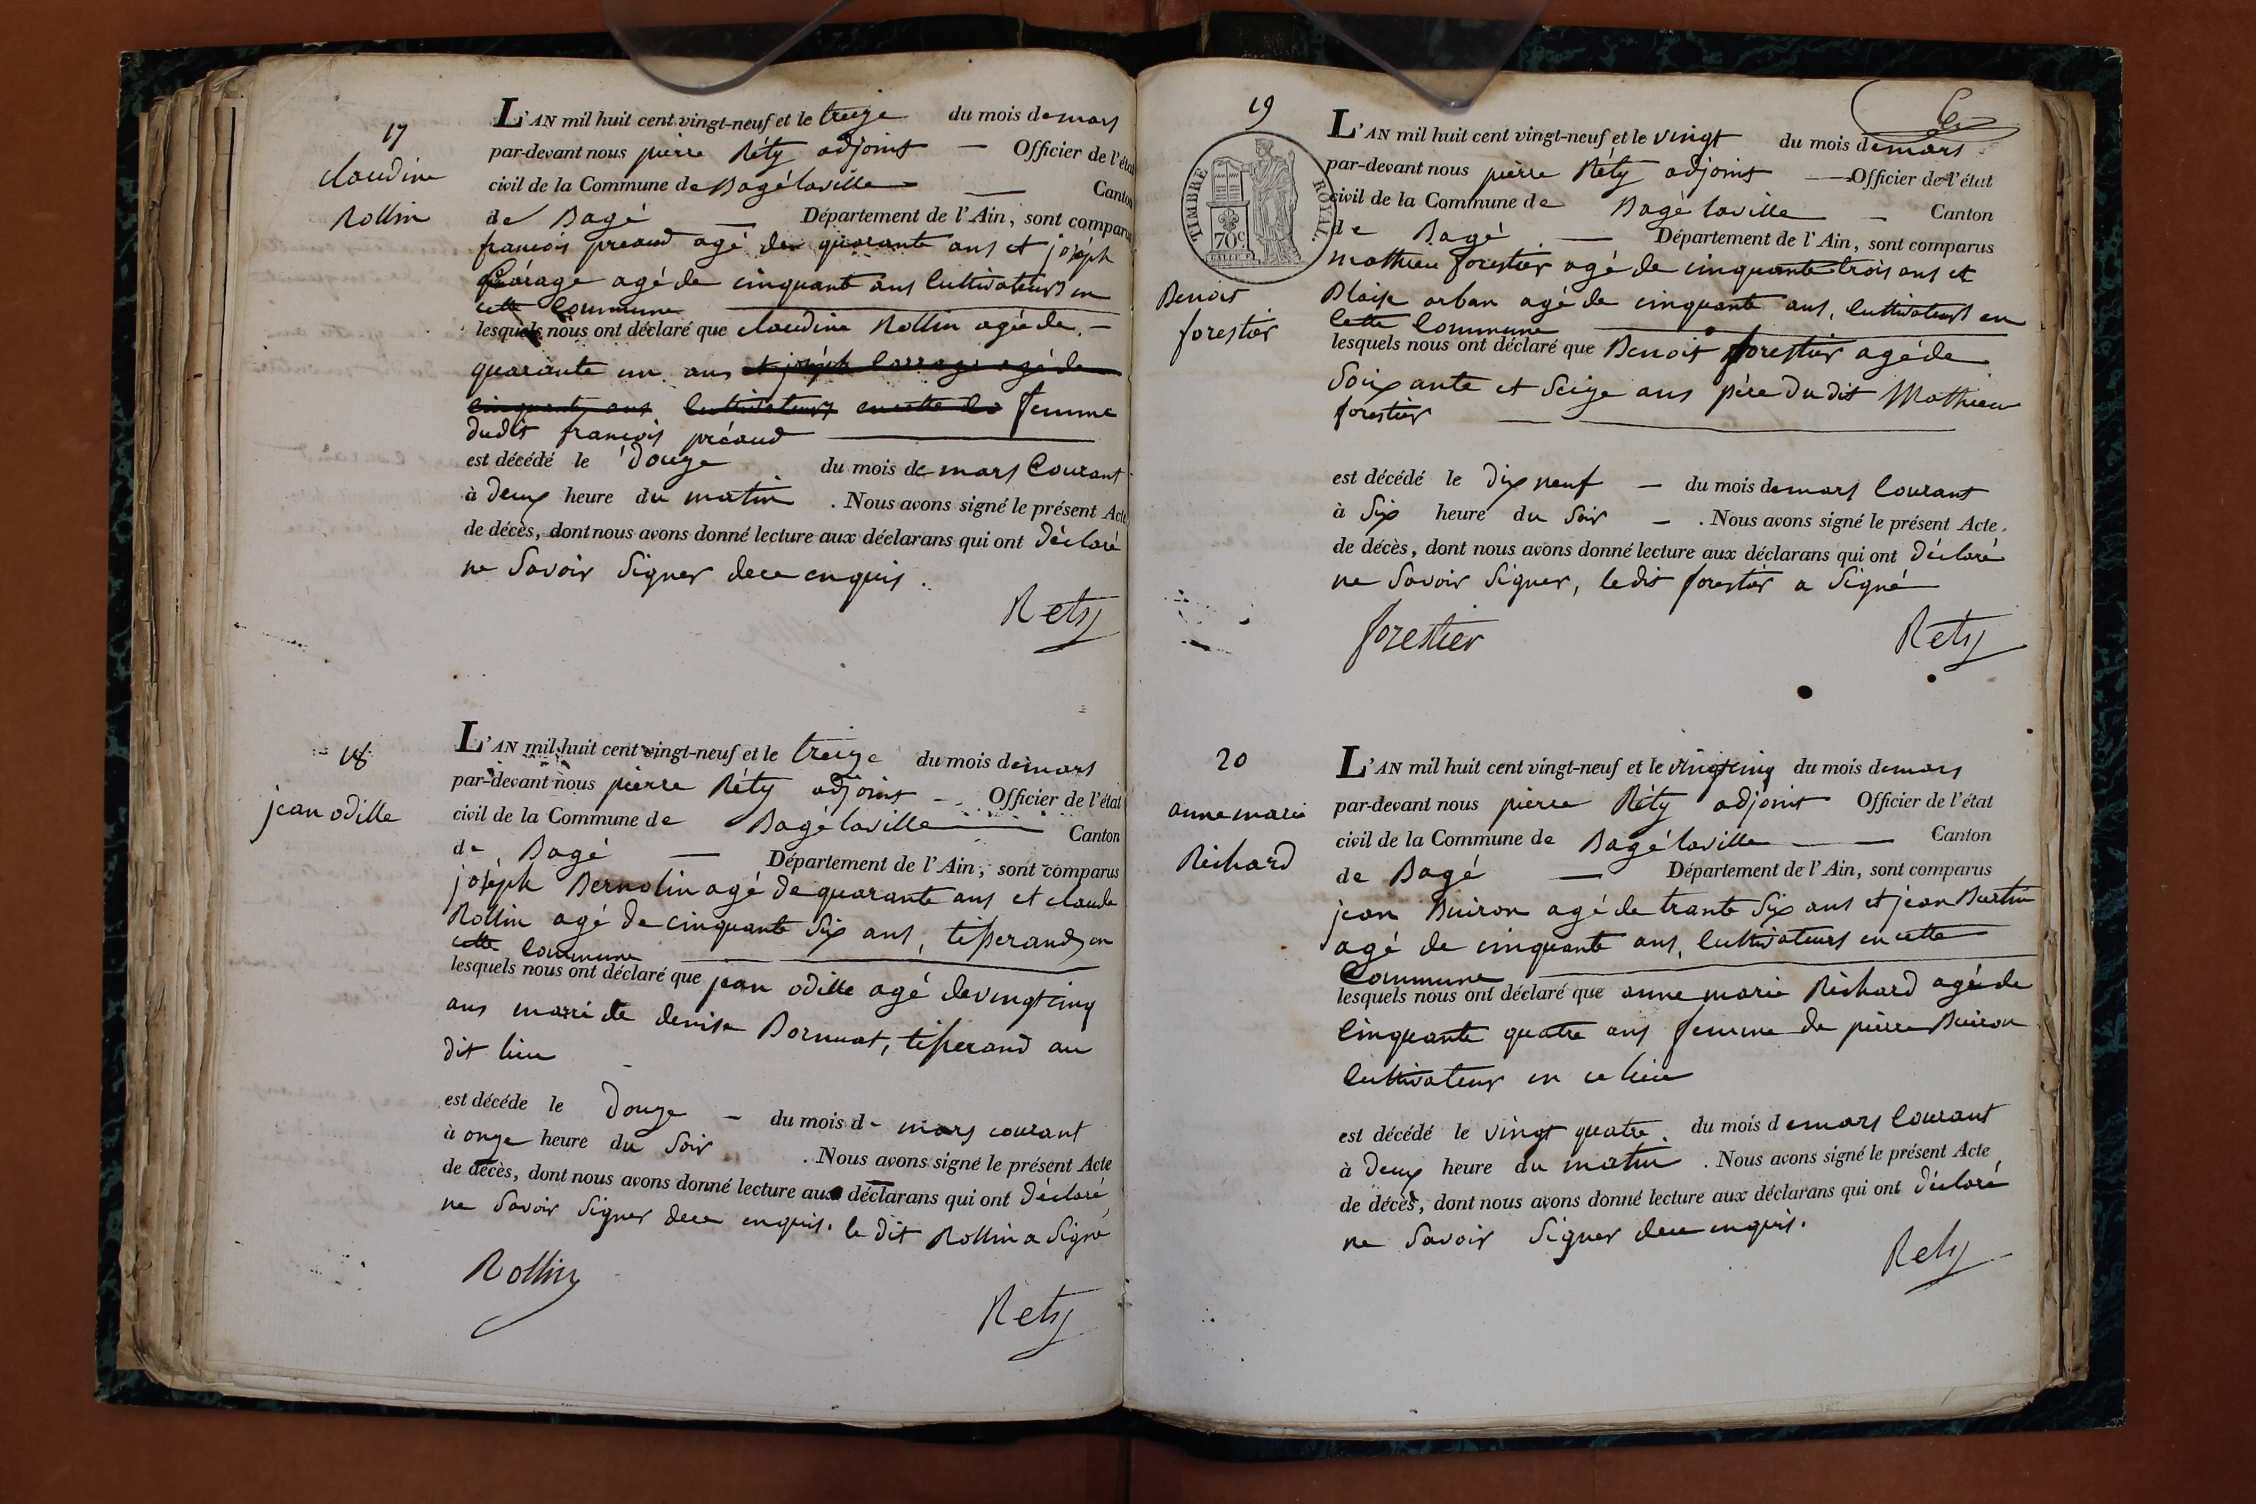 17
claudine
Rollin
L'AN mil huit cent vingt-neuf et le treize du mois de mars
par-devant nous pierre Réty adjoint — Officier de l'état
civil de la Commune de Bagélaville — Canton
de Bagé — Département de l'Ain, sont comparus
francois preaud agé de quarante ans et joséph
agé de cinquante ans Cultivateurs en
cette Commune
lesquels nous ont déclaré que claudine Rollin agée de —
quarante un ans et joséph agé de
cinquante ans Cultivateurs en cette Co femme
dudit francois préaud
est décédé le douze du mois de mars Courant
à deux heure du matin . Nous avons signé le présent Acte
de décès, dont nous avons donné lecture aux déclarans qui ont déclaré
ne Savoir Signer de ce enquis.
Rety
18
jean odille
L'AN mil huit cent vingt-neuf et le treize du mois de mars
par-devant nous pierre Réty adjoint — Officier de l'état
civil de la Commune de Bagélaville — Canton
de Bagé — Département de l'Ain, sont comparus
joséph Bernolin agé de quarante ans et claude
Rollin agé de cinquante Six ans, tisserands en
cette Commune
lesquels nous ont déclaré que jean odille agé de vingt cinq
ans marié de denise Bornuat, tisserand au
dit lieu
est décéde le douze — du mois de mars courant
à onze heure du Soir . Nous avons signé le présent Acte
de décès, dont nous avons donné lecture aux déclarans qui ont déclaré
ne Savoir Signer de ce enquis. le dit Rollin a Signé
Rollin
Rety
19
TIMBRE ROYAL.
70c
Benoit
forestier
L'AN mil huit cent vingt-neuf et le vingt du mois de mars
par-devant nous pierre Réty adjoint — Officier de l'état
civil de la Commune de Bagélaville — Canton
de Bagé — Département de l'Ain, sont comparus
mathieu forestier agé de cinquante trois ans et
Blaise arban agé de cinquante ans, Cultivateurs en
Cette Commune
lesquels nous ont déclaré que Benoit forestier agé de
Soixante et Seize ans père du dit Mathieu
forestier
est décédé le dix neuf — du mois de mars Courant
à Six heure du Soir — . Nous avons signé le présent Acte
de décès, dont nous avons donné lecture aux déclarans qui ont déclaré
ne Savoir Signer, le dit forestier a Signé
forestier Rety
20
anne marie
Richard
L'AN mil huit cent vingt-neuf et le vingt cinq du mois de mars
par-devant nous pierre Réty adjoint Officier de l'état
civil de la Commune de Bagélaville — Canton
de Bagé — Département de l'Ain, sont comparus
jean Buiron agé de trante Six ans et jean Burtin
agé de cinquante ans, Cultivateurs en cette
Commune
lesquels nous ont déclaré que anne marie Richard agée de
Cinquante quatre ans femme de pierre Buiron
Cultivateur en ce lieu
est décédé le vingt quatre du mois de mars Courant
à deux heure du matin . Nous avons signé le présent Acte
de décès, dont nous avons donné lecture aux déclarans qui ont déclaré
ne Savoir Signer de ce enquis.
Rety